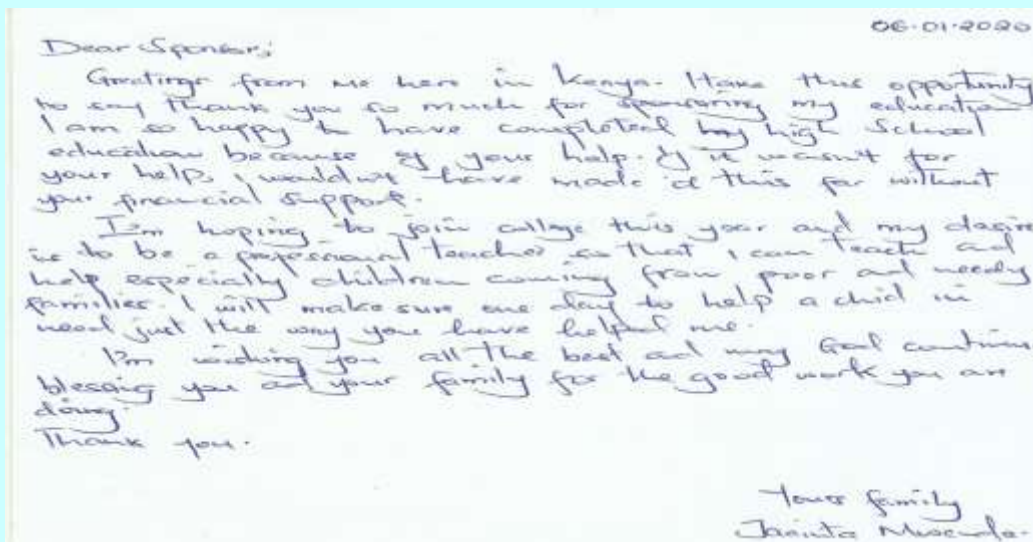 06-01-2020
Dear Sponsor;
Greetings from me here in Kenya. I take this opportunity
to say thank you so much for sponsoring my education
I am so happy to have completed my high School
education because of your help. If it wasn't for
your help, I wouldn't have made it this far without
your financial support.
I'm hoping to join college this year and my desire
is to be a professional teacher so that I can teach and
help especially children coming from poor and needy
families. I will make sure one day to help a child in
need just the way you have helped me.
I'm wishing you all the best and may God continue
blessing you and your family for the good work you are
doing.
Thank you.
family
Jacinta